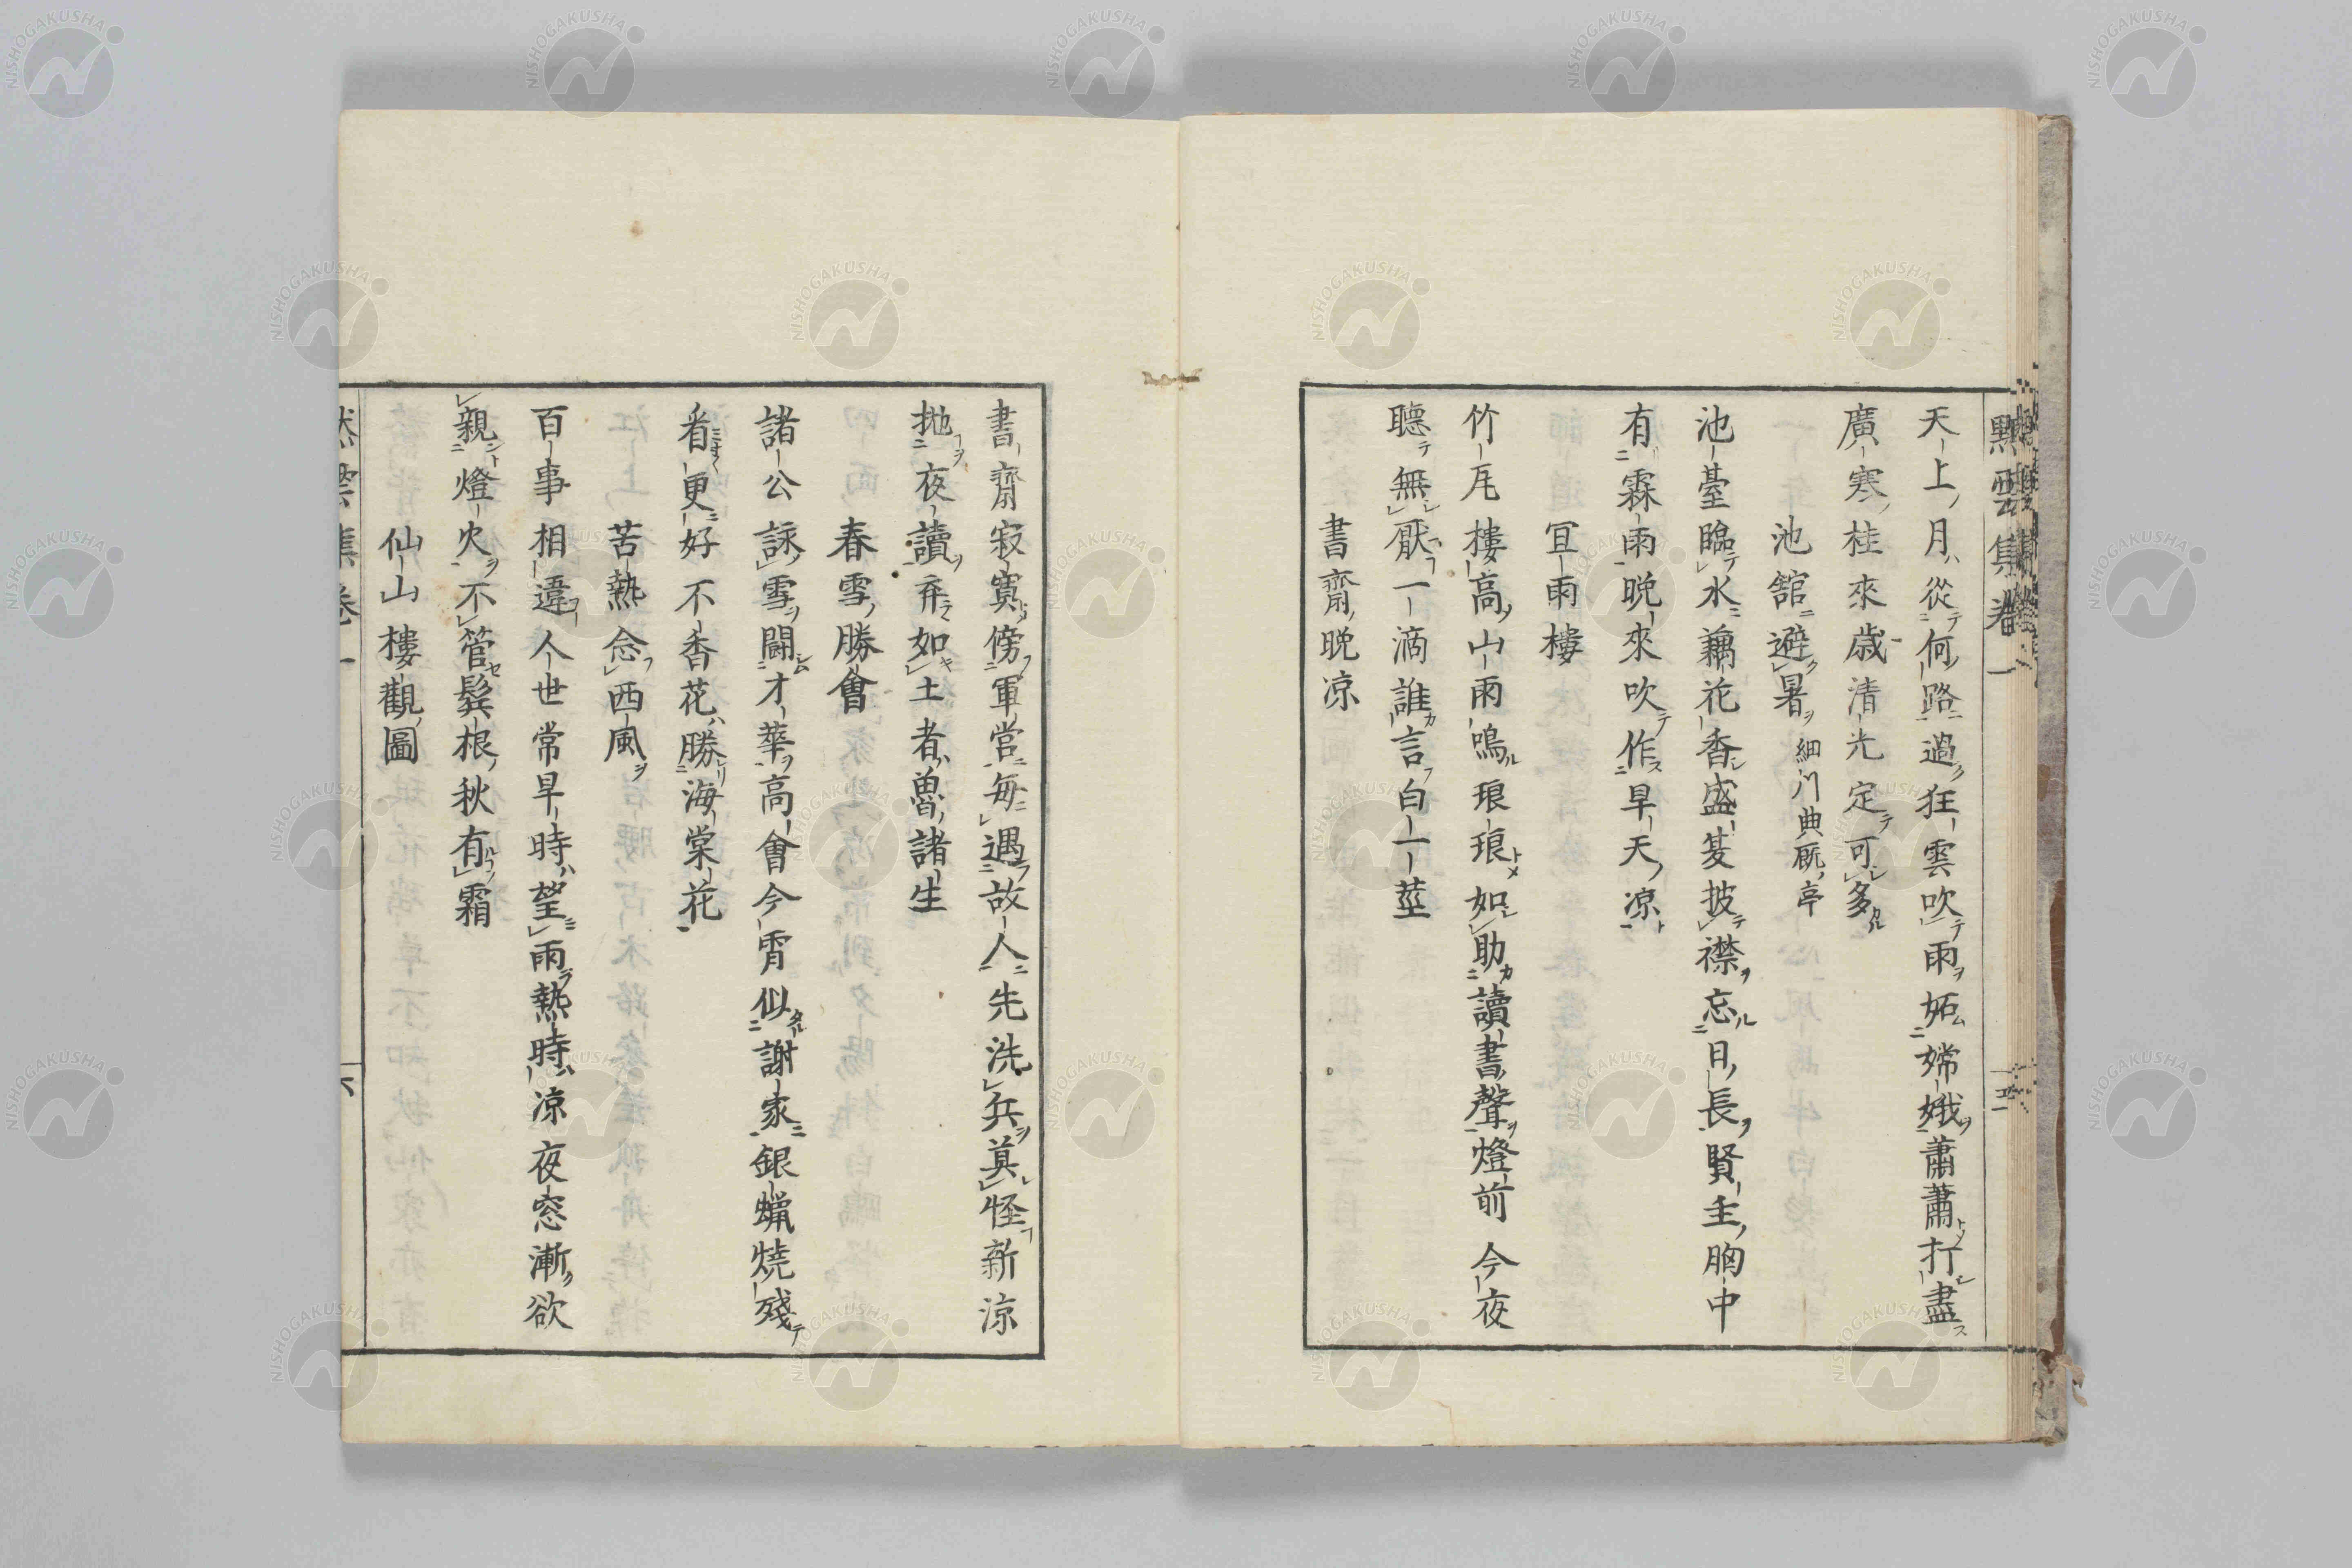 天上月從何路過狂雲吹雨妬嫦娥蕭蕭打盡
廣寒桂來歳清光定可多
池舘避暑 細川典厩亭
池臺臨水藕花香盛夏披襟忘日長賢主胸中
有霖雨晩來吹作旱天凉
冝雨樓
竹瓦樓高山雨鳴琅琅如助讀書聲燈前今夜
聽無厭一滴誰言白一莖
書齋晩凉
書齋寂寞傍軍営毎遇故人先洗兵莫怪新凉
抛夜讀弃如土者魯諸生
春雪勝會
諸公詠雪闘才華高會今宵似謝家銀蠟燒殘
看更好不香花勝海棠花
苦熱念西風
百事相違人世常旱時望雨熱時凉夜窓漸欲
親燈火不管鬂根秋有霜
仙山樓觀圖